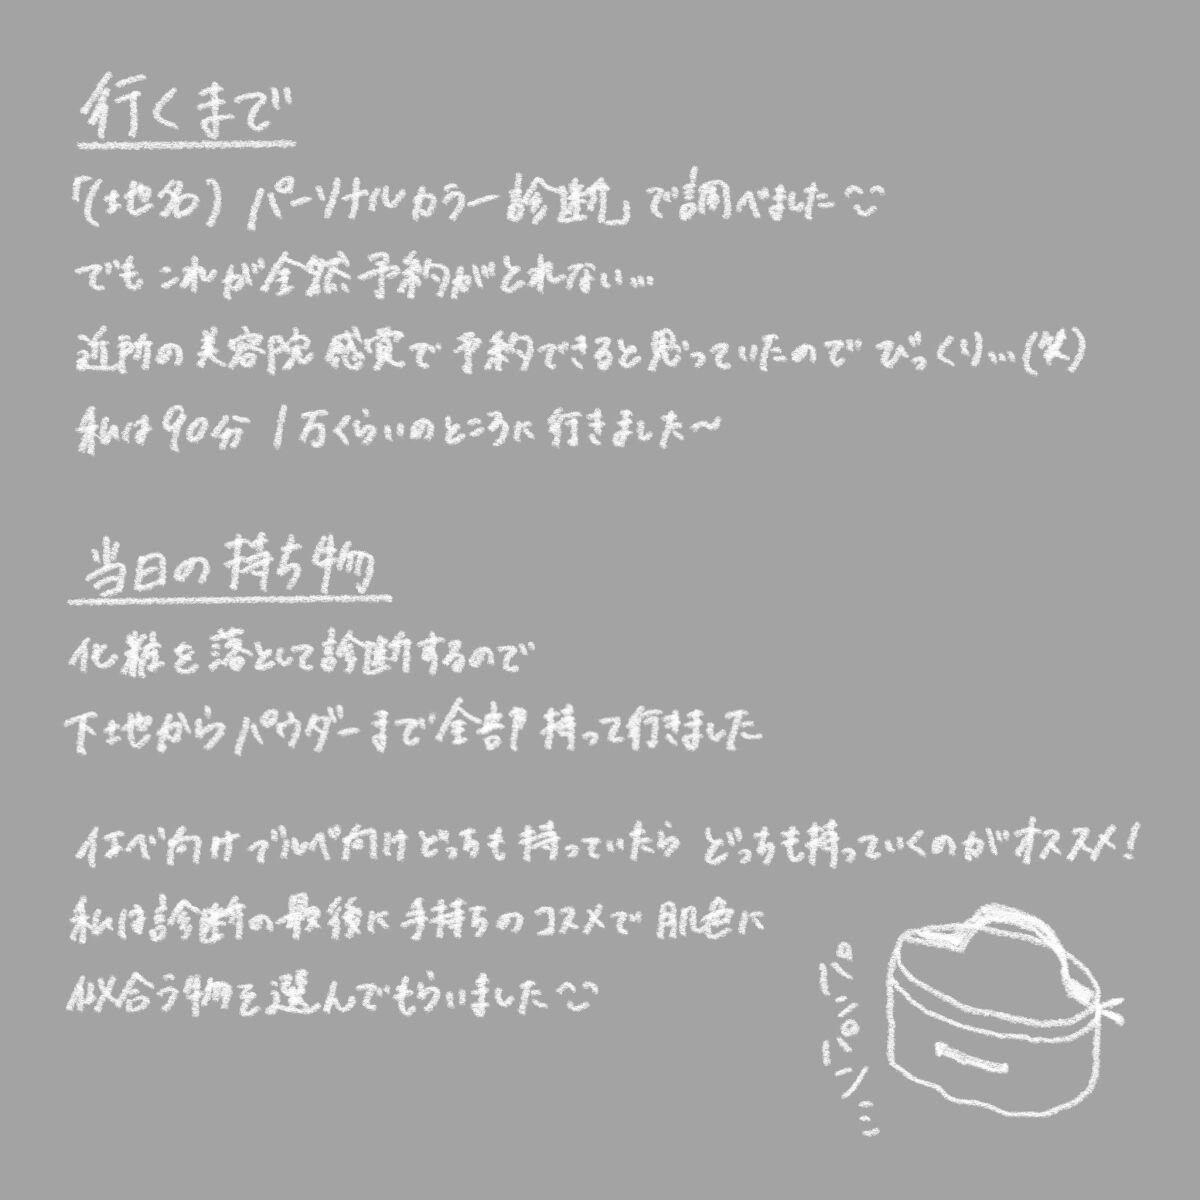 行くまで
「(地名) パーソナルカラー診断」で調べました
でも これが全然 予約がとれない…
近所の 美容院 感覚で 予約できると思っていたので びっくり…(笑)
私は 90分 1万くらいのところに 行きました〜
当日の持ち物
化粧を落として診断するので
下地からパウダーまで全部 持って行きました
イエベ向け ブルベ向け どっちも 持っていたら どっちも持っていくのがオススメ!
私は診断の最後に 手持ちのコスメで 肌色に
似合う物を選んでもらいました
パンパン…